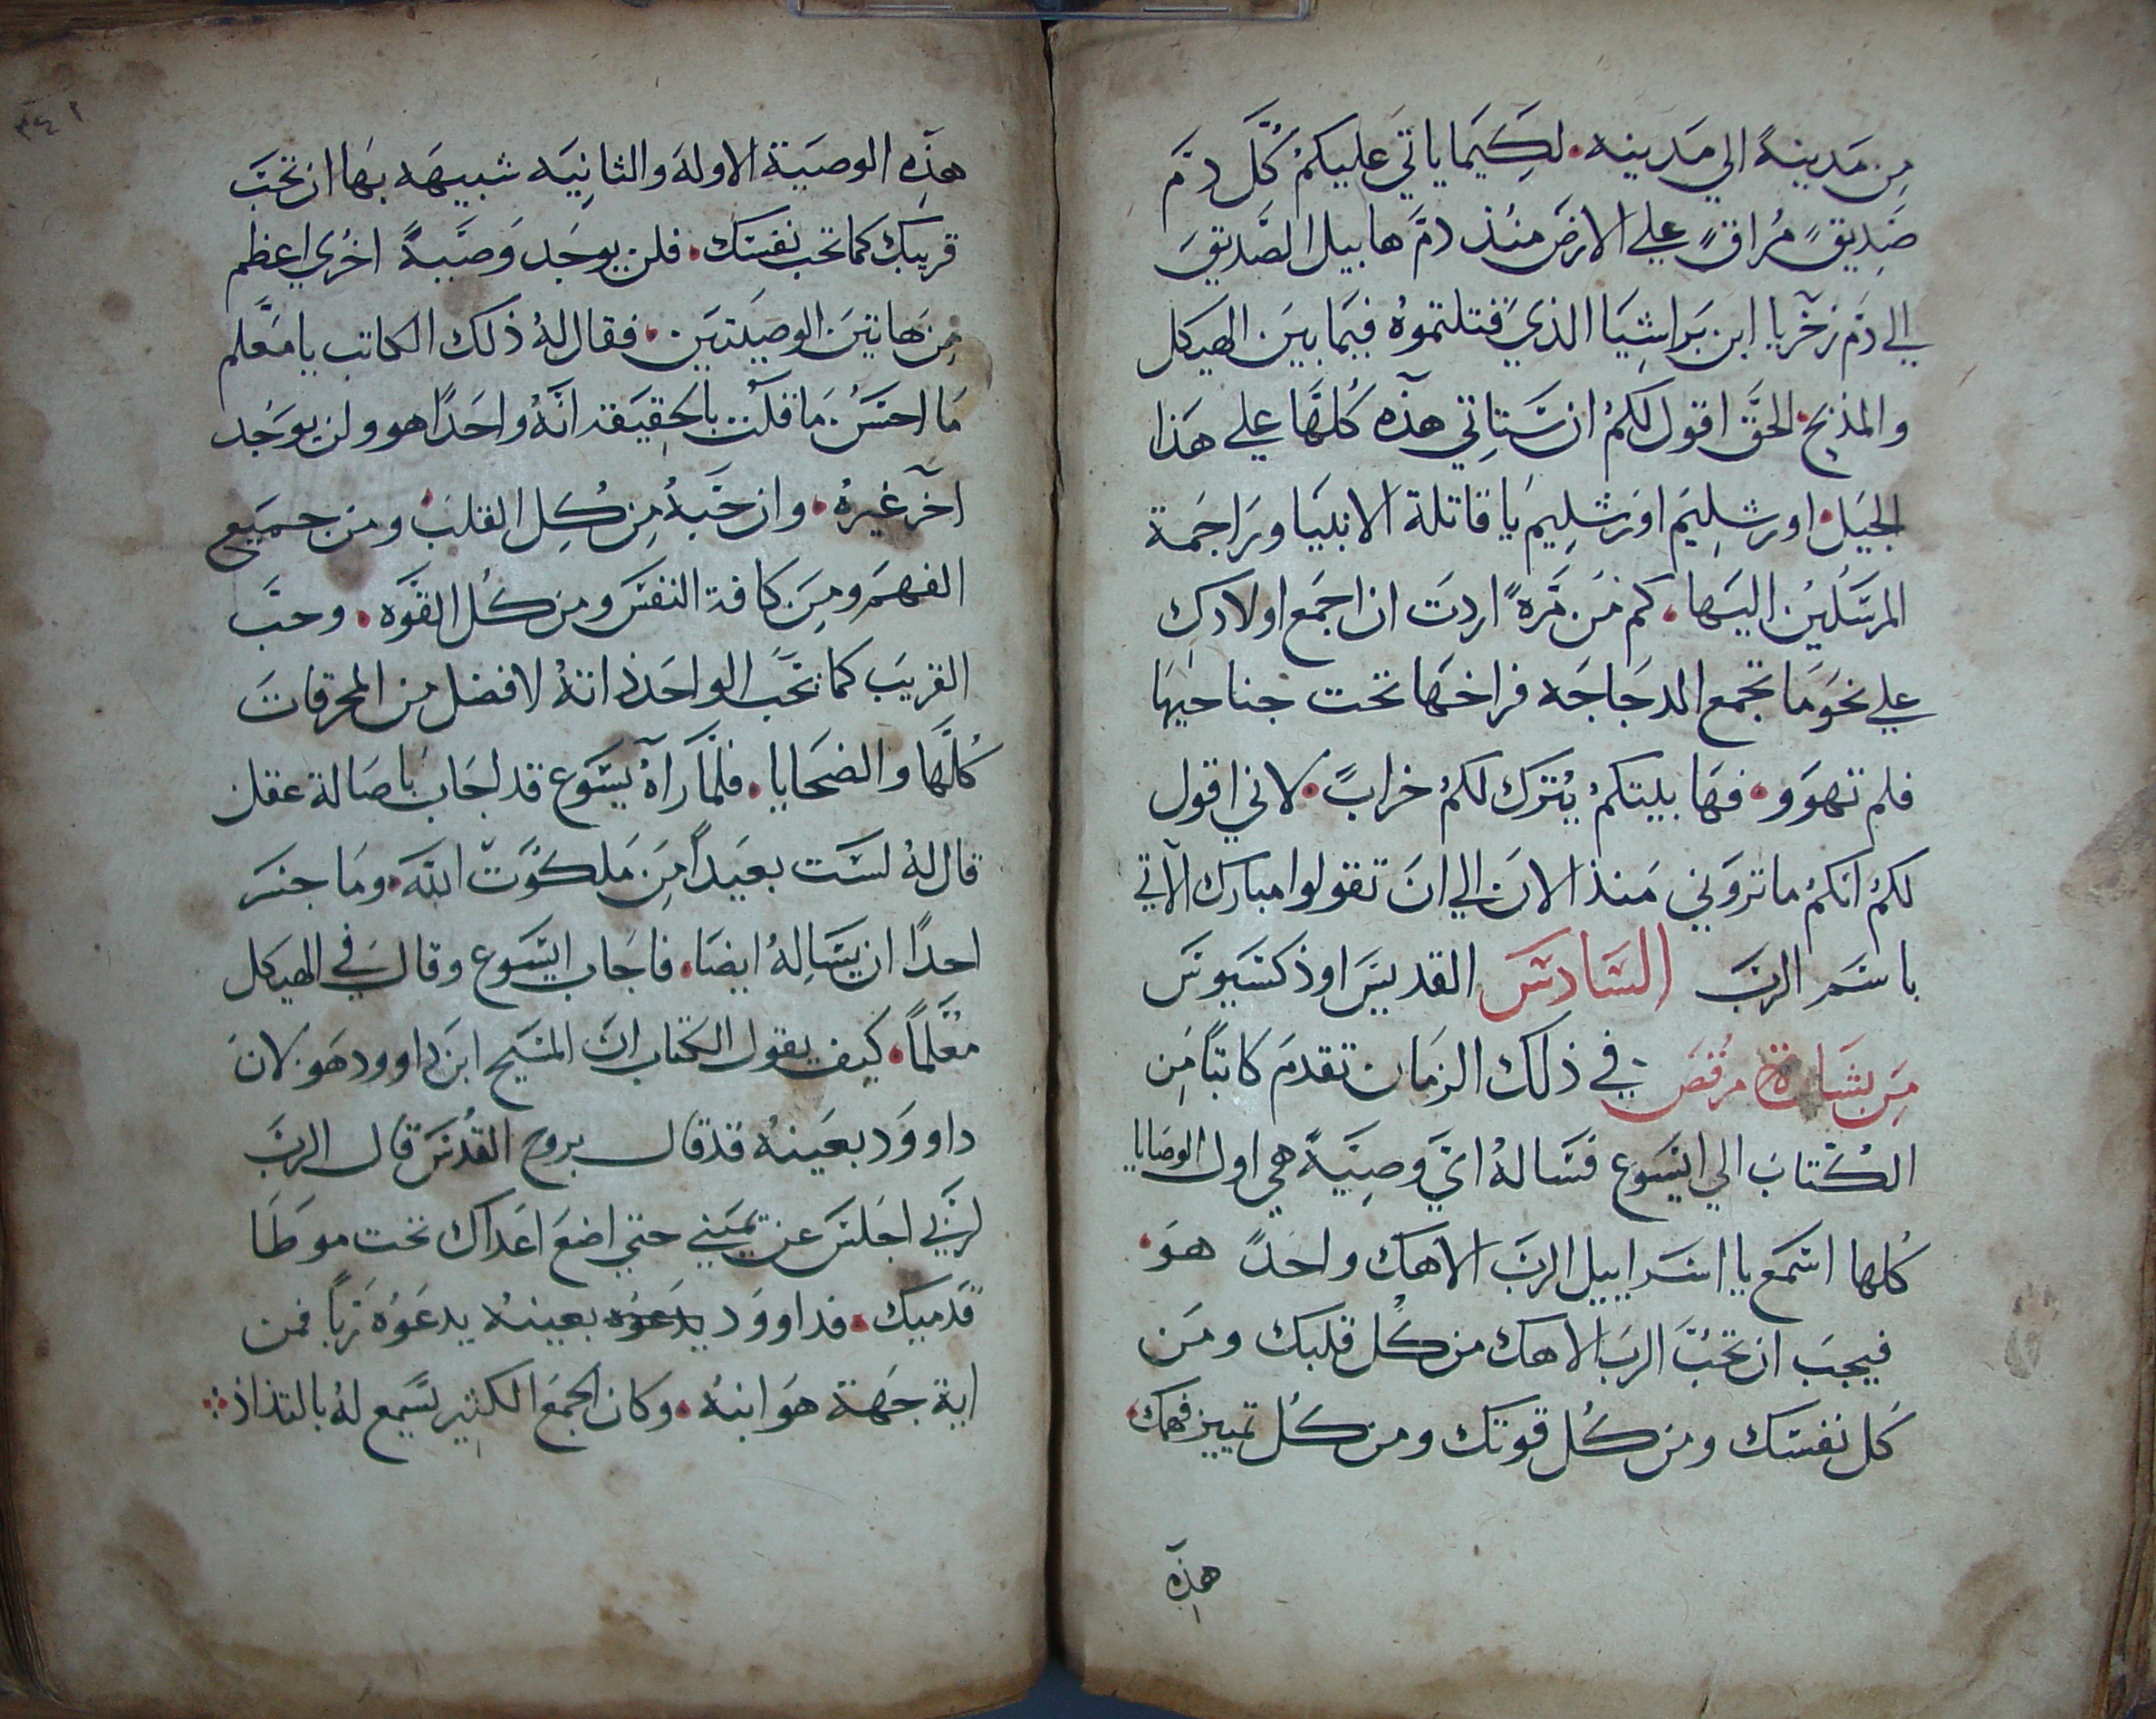 مِن مَدينةً الي مَدينه. لكِيَما ياتيَ عليكمُ كُلَّ دمَّ
صَدِيقٍ مُراقٍ علي الارضَ منُذ دمَّ هابيل الصَّديقَ
الي دَم زخَريا ابن بَراشِيَا الذيَ قتلتموهُ فيمَا بينَ الهيكل
والمذبح. الحقَّ اقول لكمُ ان سَتاتي هذه كُلهَّا علي هَذا
الجيَل. اورشِليَم اورَشلِيم يَا قاتلة الانبيَا ورَاجَمة
المرسَّليُن اليَها. كم مَن مَره اردتَ ان اجمَع اولادكِ
علي نحَو مَا تجمع الدجَاجَه فراخهَا تحت جناحيَها
فلم تهوَو. فهَا بيتكمُ يُترَك لكمُ خرابً. لاني اقول
لكمُ انكمُ ما ترَوني مَنذ الانَ الي انَ تقولوا مبارك الآتي
باسَم الربَ السَّادسَ القديسَ اوذكسَيوسَ
مَن بشَارة مرقصَ في ذلك الزمَان تقدمَ كاتبًا مَن
الكُتابَ الي ايسَوع فسَّالهُ ايَ وصِيَّةً هي اول الوصَايا
كُلها اسَّمَع يا اسَراييل الربَ الاهك واحدً هوَ.
فيجبَ ان تحُبَّ الربَ الاهك من كُل قلبك ومَن
كل نفسَك ومن كُل قوتك ومن كُل تمييز فهمك.
هذِه
٣٤١
هذِه الوصيَة الاولهَ والثانِيَه شبيهَه بهَا ان تحبَّ
قريبك كما تحب نفسَك. فلن يوجَد وَصَّيةً اخرُي اعظم
مِن هَاتيَن الوصيَتيَن. فقال لهُ ذلك الكاتب يا معَّلم
مَا احسَنُ مَا قلت بالحقِيقه انَّهُ واحَدًا هو ولن يوجَد
آخر غيرهُ. وان حَبهُ مِن كِل القلبَ ومن جميَع
الفهمَ ومِنَ كافة النفسَ ومن كُل القوَّه. وحبَ
القريبَ كما تحَب الواحَد ذاتهُ لافضل من المحرقاتَ
كُلهَّا والضحَايا. فلمَّا رَآهُ يسَوع قد اجَابَ باصَالة عقلن
قال لهُ لسَت بعيَدًا مَن مَلكوُت الله. ومَا جسَر
احدًا ان يسَاِلهُ ايضَا. فاجَاب ايسَوع وقال في الهيَكل
معُلمًا. كيف يقول الكتاب ان المسَيح ابنَ داوود هَو لانَ
داووَد بعَينهُ قد قال بروح القُدسَ قال الربَ
لربي اجلسَ عن يمَيني حتي اضعَ اعَداك تحت موطَا
قدَميك. فداووَد يدعَوه بعينهُ يدعَوُه رَبًا فمن
اية جَهة هوَ ابنهُ. وكان الجمَع الكثير يسَمع لهُ بالتذاذ